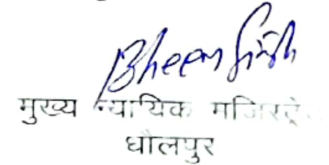 Bheem Singh
मुख्य न्यायिक मजिस्ट्रे
धौलपुर